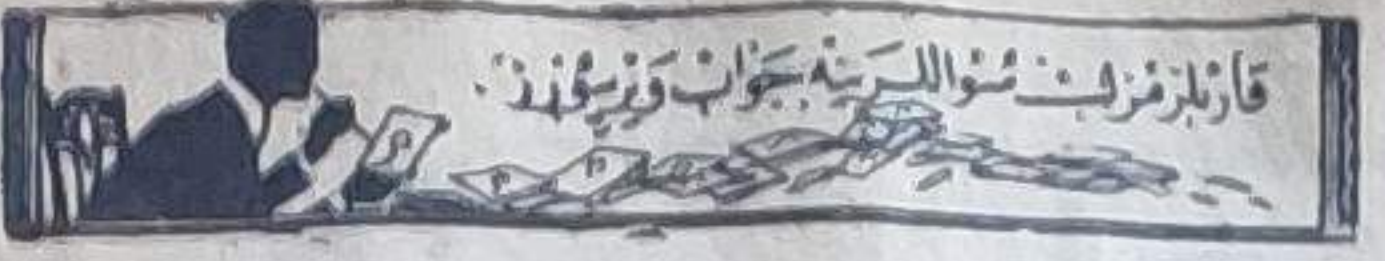 قارئلرمزك سؤاللرينه جواب ويريورز .